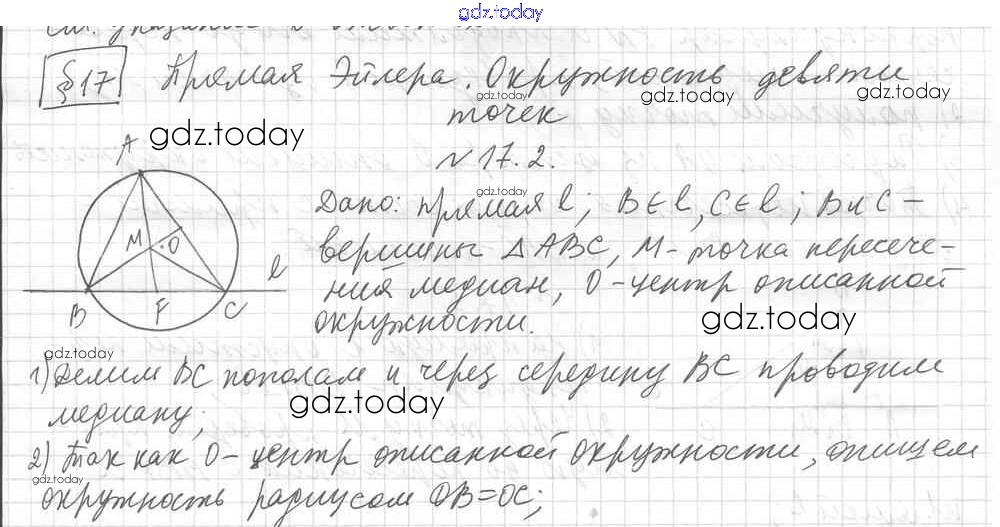 gdz.today
§17 Прямая Эйлера. Окружность девяти
gdz.today gdz.today gdz.today
точек
gdz.today
N 17.2.
A
gdz.today
Дано: прямая l; B∈l, C∈l; B и C –
M O
вершины △ABC, M - точка пересече-
l
ния медиан, O - центр описанной
B F C
окружности.
gdz.today
gdz.today
1) Делим BC пополам и через середину BC проводим
gdz.today
медиану;
2) Так как O - центр описанной окружности, опишем
gdz.today
окружность радиусом OB=OC;